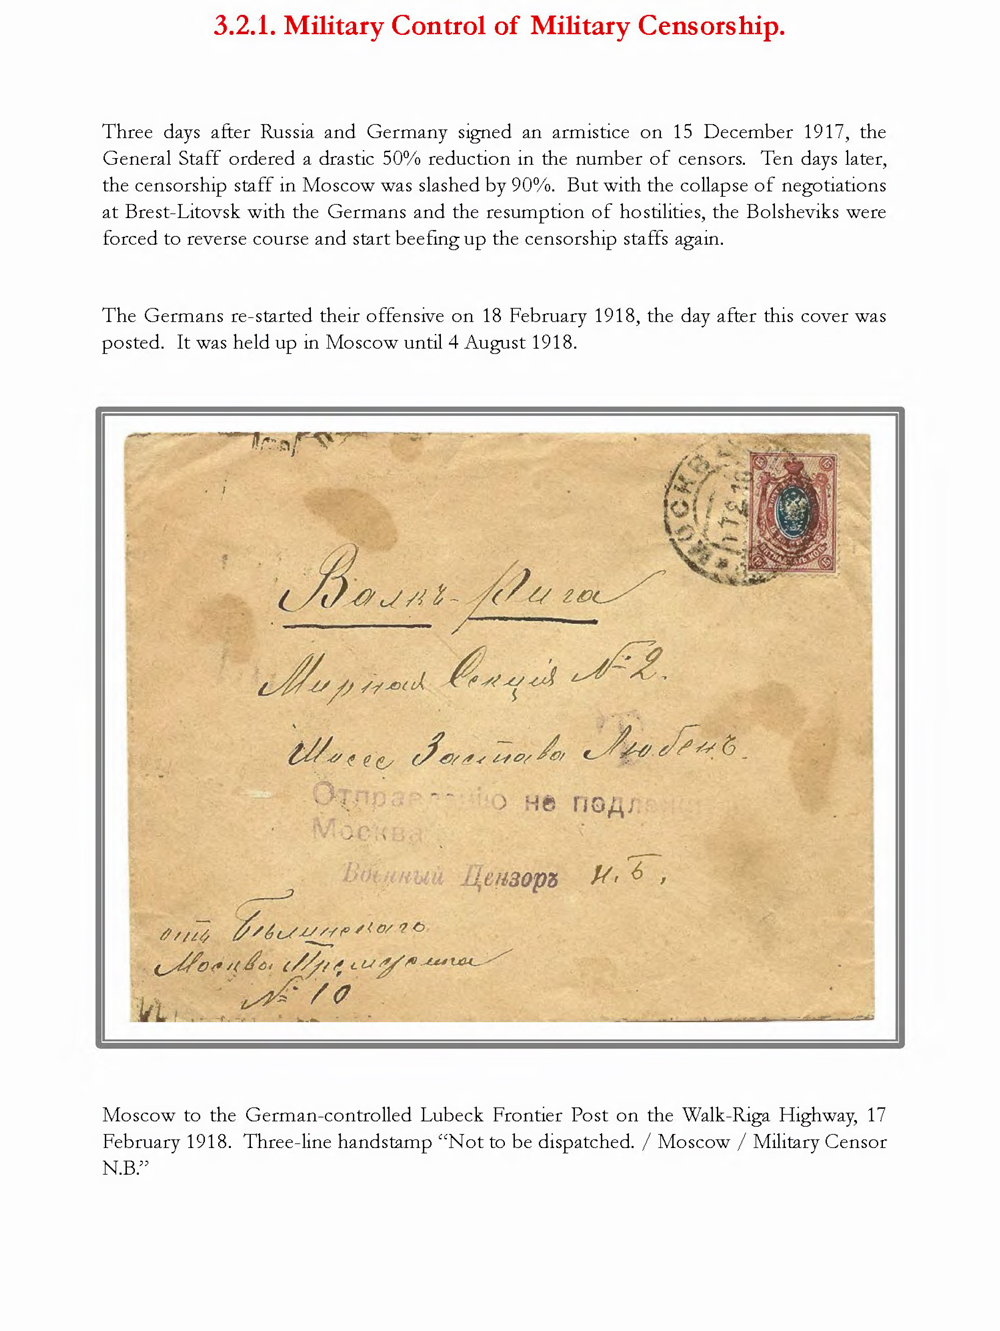 3.2.1. Military Control of Military Censorship.
Three days after Russia and Germany signed an armistice on 15 December 1917, the
General Staff ordered a drastic 50% reduction in the number of censors. Ten days later,
the censorship staff in Moscow was slashed by 90%. But with the collapse of negotiations
at Brest-Litovsk with the Germans and the resumption of hostilities, the Bolsheviks were
forced to reverse course and start beefing up the censorship staffs again.
The Germans re-started their offensive on 18 February 1918, the day after this cover was
posted. It was held up in Moscow until 4 August 1918.
МОСКВА
17 2 18
Валкъ-Рига
Мирная Секція № 2.
Шоссе Застава Любенъ.
не
Москва
Военный Цензоръ Н. Б.
отъ Бѣлинскаго
Москва
№ 10
Moscow to the German-controlled Lubeck Frontier Post on the Walk-Riga Highway, 17
February 1918. Three-line handstamp “Not to be dispatched. / Moscow / Military Censor
N.B.”